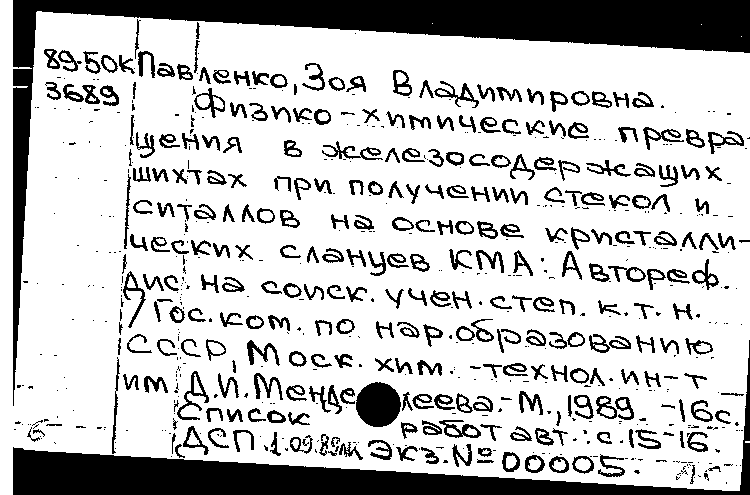 89-50к Павленко, Зоя Владимировна.
3689 Физико-химические превра-
щения в железосодержащих
шихтах при получении стекол и
ситаллов на основе кристалли-
ческих сланцев КМА: Автореф.
дис. на соиск. учен. степ. к.т.н.
/ Гос. ком. по нар. образованию
СССР, Моск. хим.-технол. ин-т
им. Д.И. Менделеева.-М., 1989. -16с.
Список работ авт.: с. 15-16.
ДСП. 1.09.89 Экз. № 00005.
б